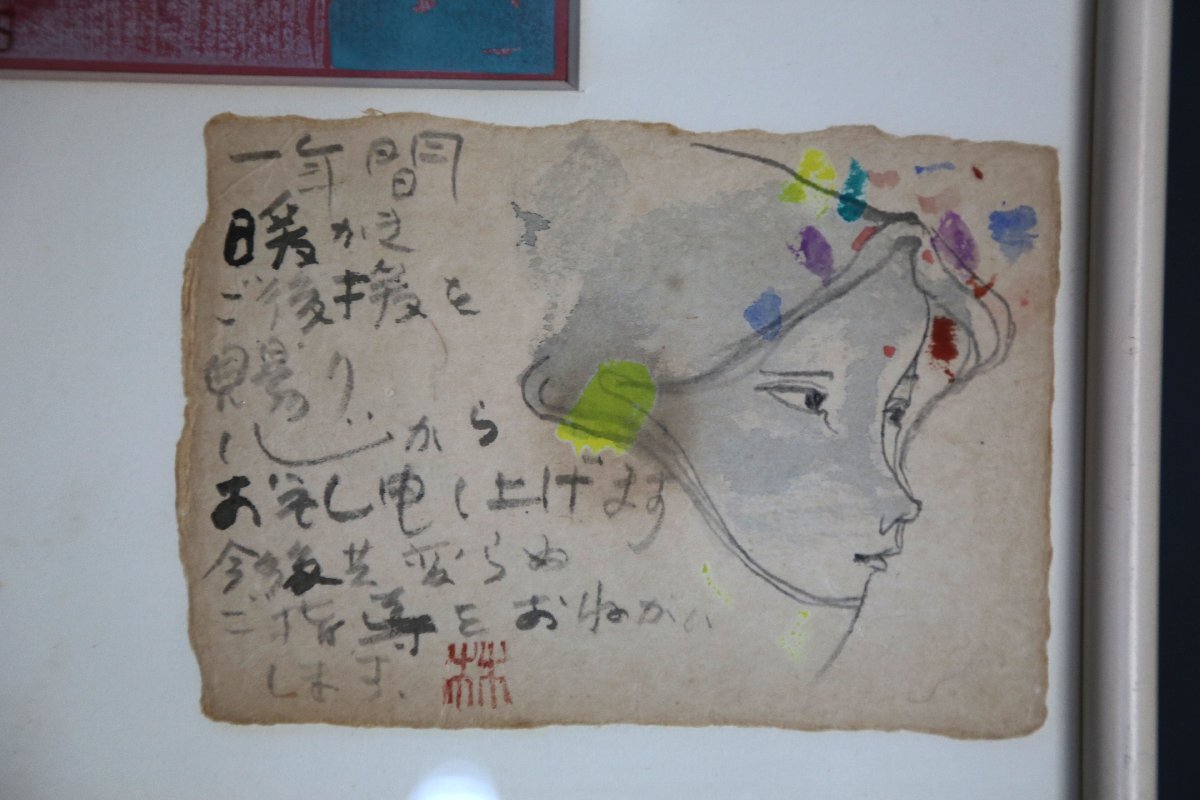 一年間
暖かき
ご後援を
見賜り
心から
お礼し申し上げます
今後共変らぬ
ご指導をおねがい
します.
林